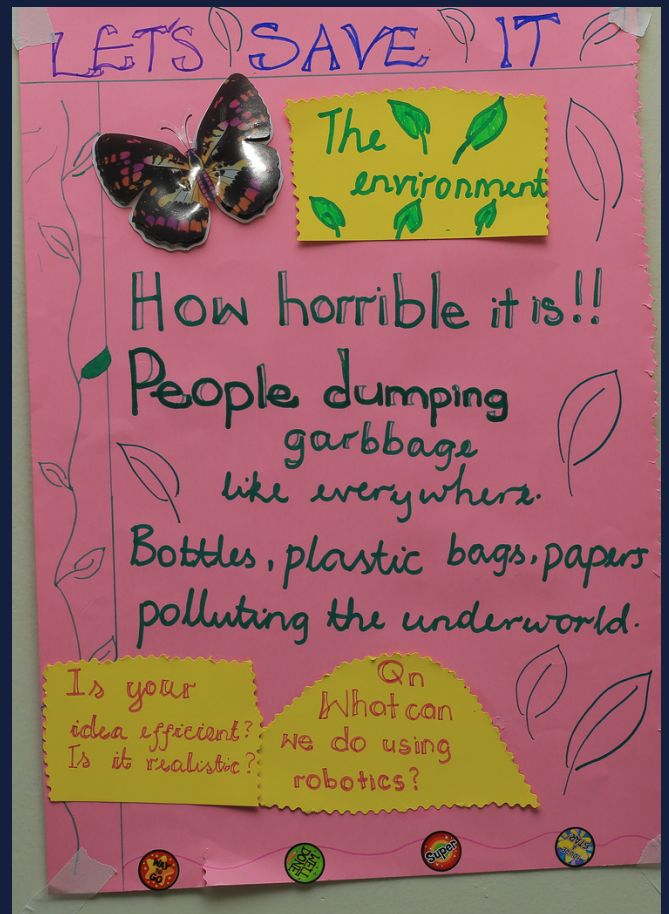 LET'S SAVE IT
The
environment
How horrible it is!!
People dumping
garbbage
like everywhere.
Bottles, plastic bags, papers
polluting the underworld.
Is your
idea efficient?
Is it realistic?
Qn
What can
we do using
robotics?
WAY
TO
GO
WELL
DONE
Super